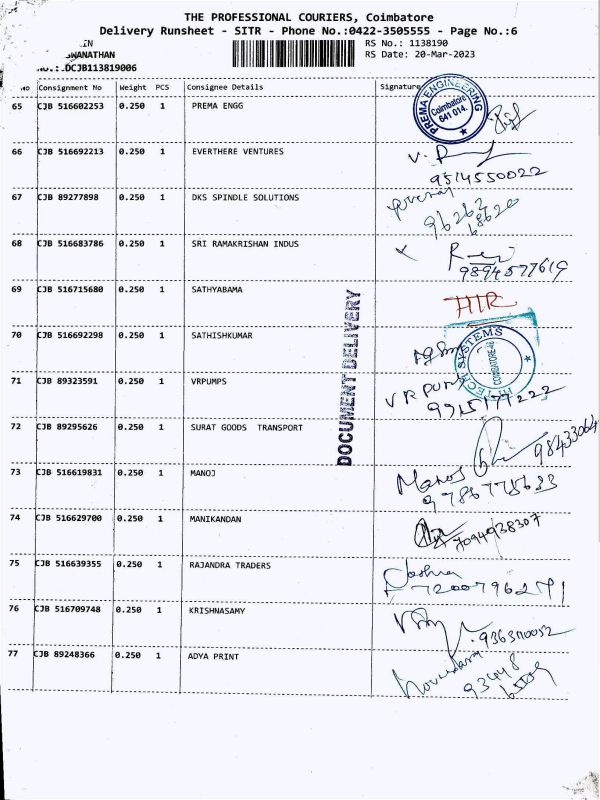 THE PROFESSIONAL COURIERS, Coimbatore
Delivery Runsheet - SITR - Phone No.:0422-3505555 - Page No.:6
RS No.: 1138190
RS Date: 20-Mar-2023
WANATHAN
.:DCJB113819006
No Consignment No Weight PCS Consignee Details Signature
65 CJB 516602253 0.250 1 PREMA ENGG
PREMA ENGINEERING Coimbatore 641 014.
66 CJB 516692213 0.250 1 EVERTHERE VENTURES
9514550022
67 CJB 89277898 0.250 1 DKS SPINDLE SOLUTIONS
96262
68620
68 CJB 516683786 0.250 1 SRI RAMAKRISHAN INDUS
9894577619
69 CJB 516715680 0.250 1 SATHYABAMA
DOCUMENT DELIVERY
70 CJB 516692298 0.250 1 SATHISHKUMAR
TECH SYSTEMS
71 CJB 89323591 0.250 1 VRPUMPS
VR PUMPS
72 CJB 89295626 0.250 1 SURAT GOODS TRANSPORT
98433064
73 CJB 516619831 0.250 1 MANOJ
Manoj
74 CJB 516629700 0.250 1 MANIKANDAN
7094938307
75 CJB 516639355 0.250 1 RAJANDRA TRADERS
76 CJB 516709748 0.250 1 KRISHNASAMY
77 CJB 89248366 0.250 1 ADYA PRINT
93448